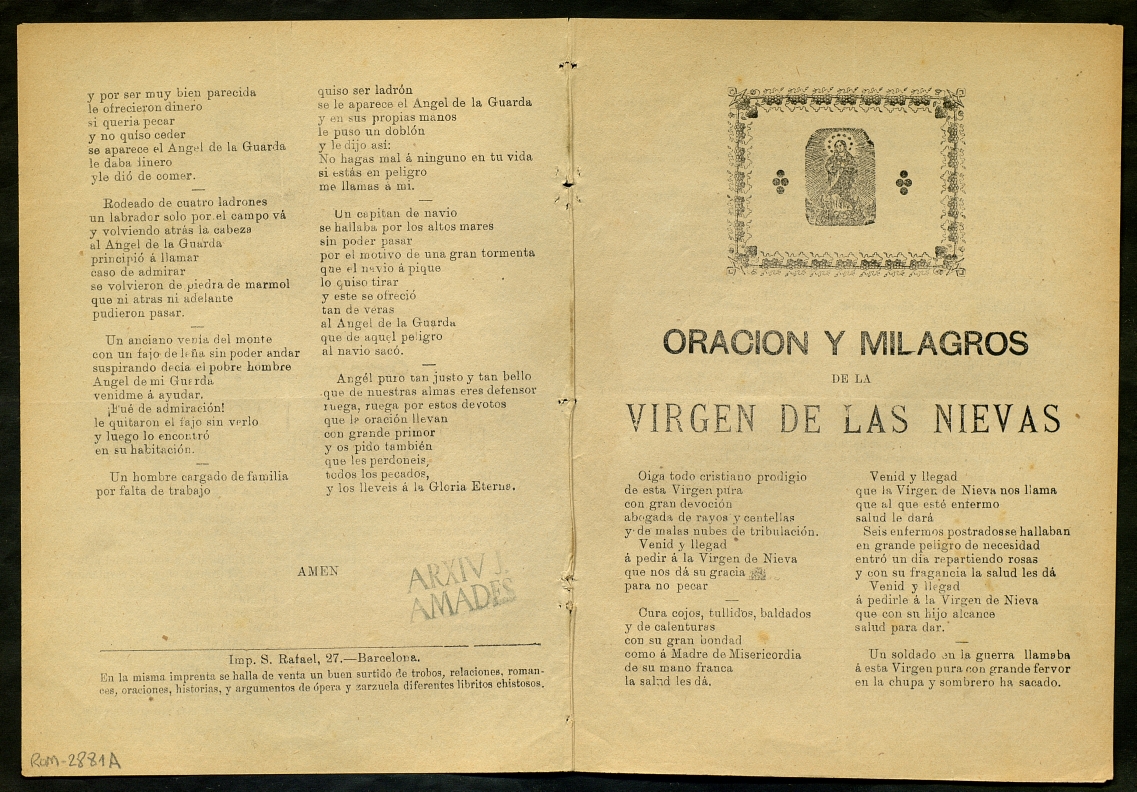 y por ser muy bien parecida
le ofrecieron dinero
si queria pecar
y no quiso ceder
se aparece el Angel de la Guarda
le daba dinero
yle dió de comer.
Rodeado de cuatro ladrones
un labrador solo por el campo vá
y volviendo atrás la cabeza
al Angel de la Guarda
principió á llamar
caso de admirar
se volvieron de piedra de marmol
que ni atras ni adelante
pudieron pasar.
Un anciano venia del monte
con un fajo de leña sin poder andar
suspirando decia el pobre hombre
Angel de mi Guarda
venidme á ayudar.
¡Fué de admiración!
le quitaron el fajo sin verlo
y luego lo encontró
en su habitación.
Un hombre cargado de familia
por falta de trabajo
quiso ser ladrón
se le aparece el Angel de la Guarda
y en sus propias manos
le puso un doblón
y le dijo asi:
No hagas mal á ninguno en tu vida
si estás en peligro
me llamas á mi.
Un capitan de navio
se hallaba por los altos mares
sin poder pasar
por el motivo de una gran tormenta
que el navio á pique
lo quiso tirar
y este se ofreció
tan de veras
al Angel de la Guarda
que de aquel peligro
al navio sacó.
Angél puro tan justo y tan bello
que de nuestras almas eres defensor
ruega, ruega por estos devotos
que la oración llevan
con grande primor
y os pido también
que les perdoneis,
todos los pecados,
y los lleveis á la Gloria Eterna.
AMEN
ARXIV J.
AMADES
Imp. S. Rafael, 27.—Barcelona.
En la misma imprenta se halla de venta un buen surtido de trobos, relaciones, roman-
ces, oraciones, historias, y argumentos de ópera y zarzuela diferentes libritos chistosos.
ROM-2881A
ORACION Y MILAGROS
DE LA
VIRGEN DE LAS NIEVAS
Oiga todo cristiano prodigio
de esta Virgen pura
con gran devoción
abogada de rayos y centellas
y de malas nubes de tribulación.
Venid y llegad
á pedir á la Virgen de Nieva
que nos dá su gracia
para no pecar
Cura cojos, tullidos, baldados
y de calenturas
con su gran bondad
como á Madre de Misericordia
de su mano franca
la salud les dá.
Venid y llegad
que la Virgen de Nieva nos llama
que al que esté enfermo
salud le dará
Seis enfermos postrados se hallaban
en grande peligro de necesidad
entró un dia repartiendo rosas
y con su fragancia la salud les dá
Venid y llegad
á pedirle á la Virgen de Nieva
que con su hijo alcance
salud para dar.
Un soldado en la guerra llamaba
á esta Virgen pura con grande fervor
en la chupa y sombrero ha sacado.